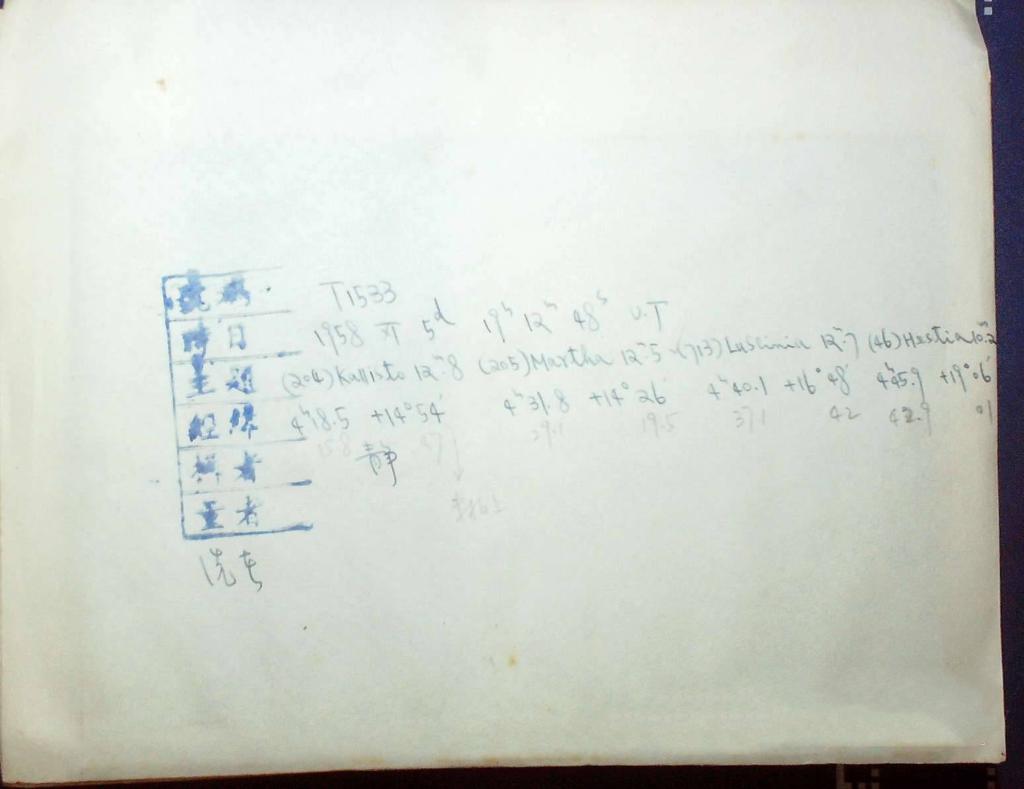 號碼 T1533
時日 1958 XI 5ᵈ 19ʰ 12ᵐ 48ˢ U.T
主題 (204) Kallisto 12ᵐ.8 (205) Martha 12ᵐ.5 (713) Luscinia 12ᵐ.7 (46) Hestia 10ᵐ.2
經緯 4ʰ18.5 +14°54′ 4ʰ31.8 +14°26′ 4ʰ40.1 +16°48′ 4ʰ45.9 +19°06′
15.8 47 29.1 19.5 37.1 42 42.9 01
者 靜
者